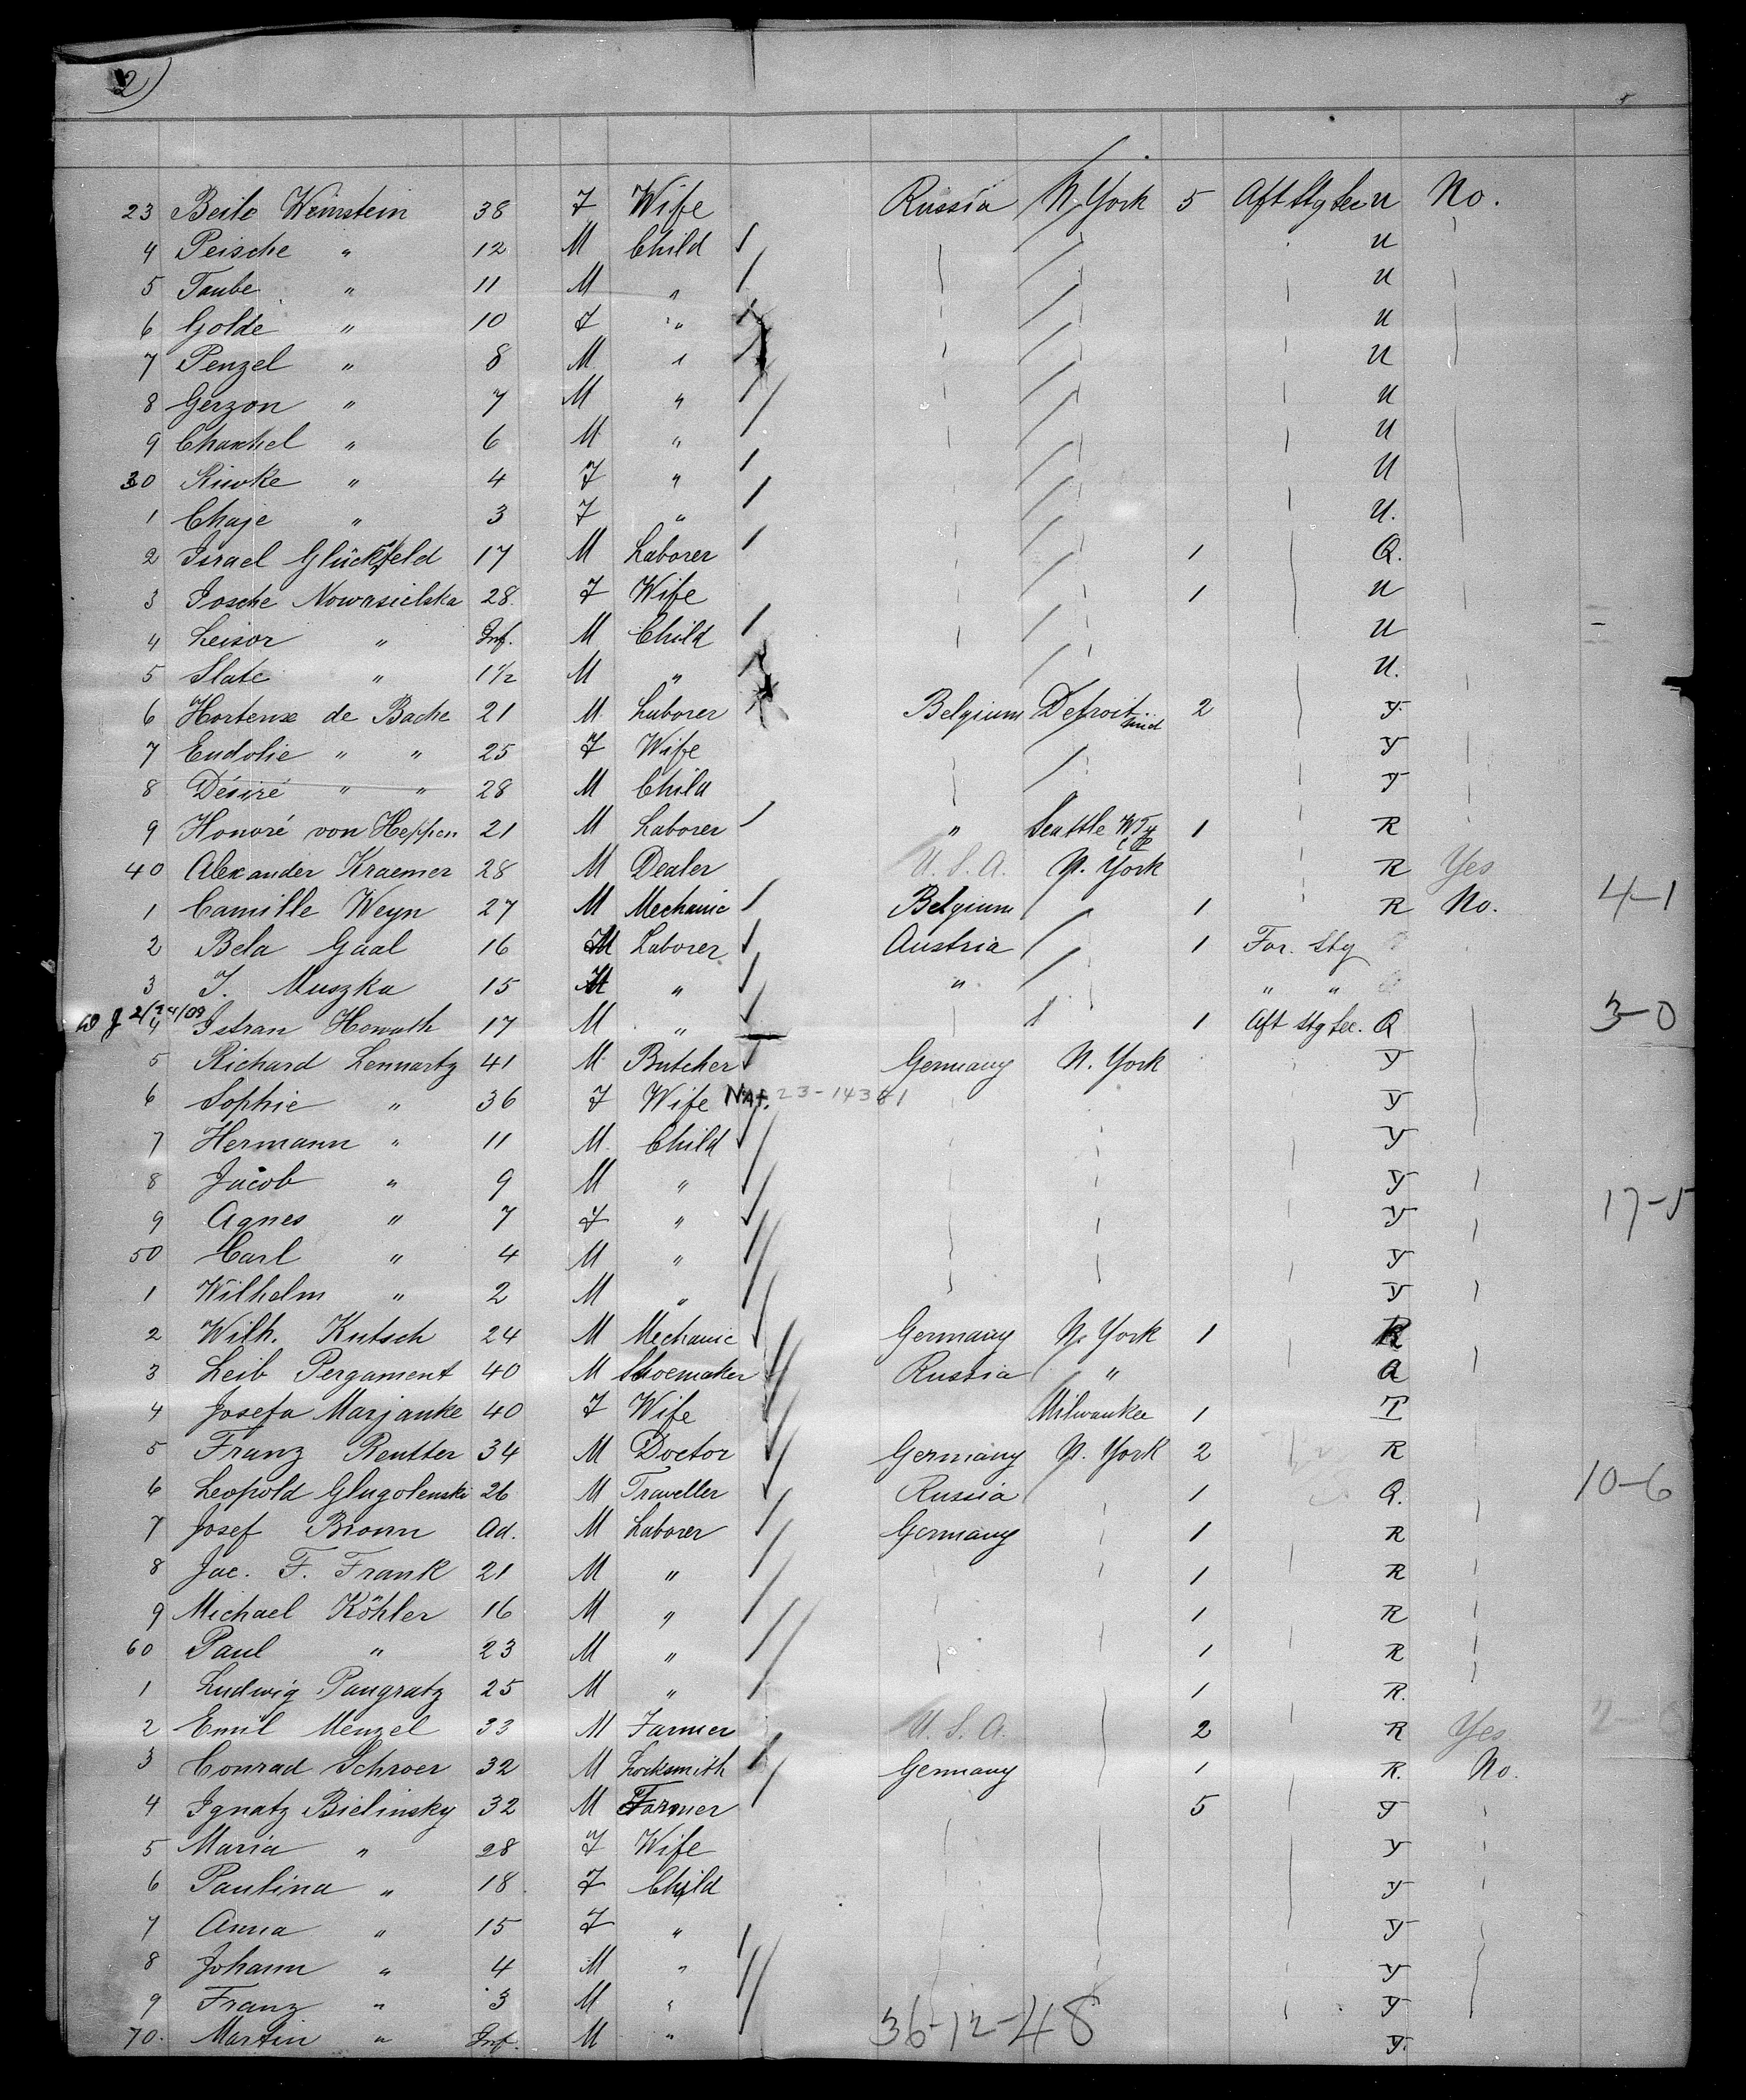 2)
23 Beile Weinstein 38 F Wife Russia N. York 5 Aft Stg Sec U No.
4 Peische " 12 M Child U
5 Taube " 11 M " U
6 Golde " 10 F " U
7 Penzel " 8 M " U
8 Gerzon " 7 M " U
9 Chaschel " 6 M " U
30 Riwke " 4 F " U
1 Chaje " 3 F " U.
2 Israel Glückfeld 17 M Laborer 1 Q.
3 Josche Nowasielska 28 F Wife 1 U
4 Leisor " Inf. M Child U
5 Slate " 1 1/2 M " U.
6 Hortense de Bache 21 M Laborer Belgium Detroit Mid 2 Y
7 Eudolie " " 25 F Wife Y
8 Désiré " " 28 M Child Y
9 Honoré von Heppen 21 M Laborer " Seattle W.Ty 1 R
40 Alexander Kraemer 28 M Dealer U.S.A. N. York R Yes
1 Camille Weyn 27 M Mechanic Belgium 1 R No. 4-1
2 Bela Gaal 16 M Laborer Austria 1 For. Stg
3 J. Muszka 15 M " " " "
4 Istran Howath 17 M " 1 Aft Stg Sec. Q 3-0
5 Richard Lennartz 41 M Butcher Germany N. York Y
6 Sophie " 36 F Wife Nat. 23-14381 Y
7 Hermann " 11 M Child Y
8 Jacob " 9 M " Y
9 Agnes " 7 F " Y 17-5
50 Carl " 4 M " Y
1 Wilhelm " 2 M " Y
2 Wilh. Kutsch 24 M Mechanic Germany N. York 1 R
3 Leib Pergament 40 M Shoemaker Russia " Q
4 Josefa Marjanke 40 F Wife Milwaukee 1 T
5 Franz Reutter 34 M Doctor Germany N. York 2 R
6 Leopold Glugolenski 26 M Traveller Russia 1 Q. 10-6
7 Josef Bronn Ad. M Laborer Germany 1 R
8 Jac. F. Frank 21 M " 1 R
9 Michael Köhler 16 M " 1 R
60 Paul " 23 M " 1 R
1 Ludwig Pangratz 25 M " 1 R.
2 Emil Menzel 33 M Farmer U.S.A. 2 R Yes
3 Conrad Schroer 32 M Locksmith Germany 1 R. No.
4 Ignatz Bielinsky 32 M Farmer 5 Y
5 Maria " 28 F Wife Y
6 Paulina " 18 F Child Y
7 Anna " 15 F " Y
8 Johann " 4 M " Y
9 Franz " 3 M " Y
70. Martin " Inf. M " 36-12-48 Y.